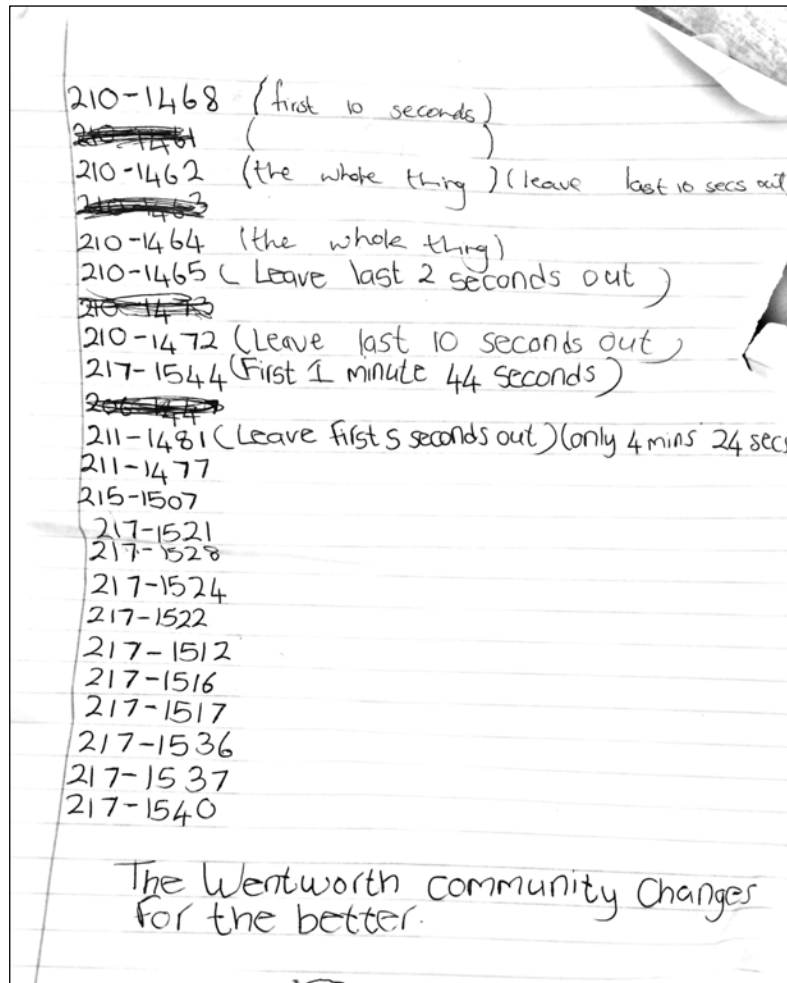 210-1468 (first 10 seconds)
( )
210-1462 (the whole thing) (leave last 10 secs out
210-1464 (the whole thing)
210-1465 (Leave last 2 seconds out)
210-1472 (Leave last 10 seconds out)
217-1544 (First 1 minute 44 seconds)
211-1481 (Leave first 5 seconds out) (only 4 mins 24 secs
211-1477
215-1507
217-1521
217-1528
217-1524
217-1522
217-1512
217-1516
217-1517
217-1536
217-1537
217-1540
The Wentworth community Changes
For the better.